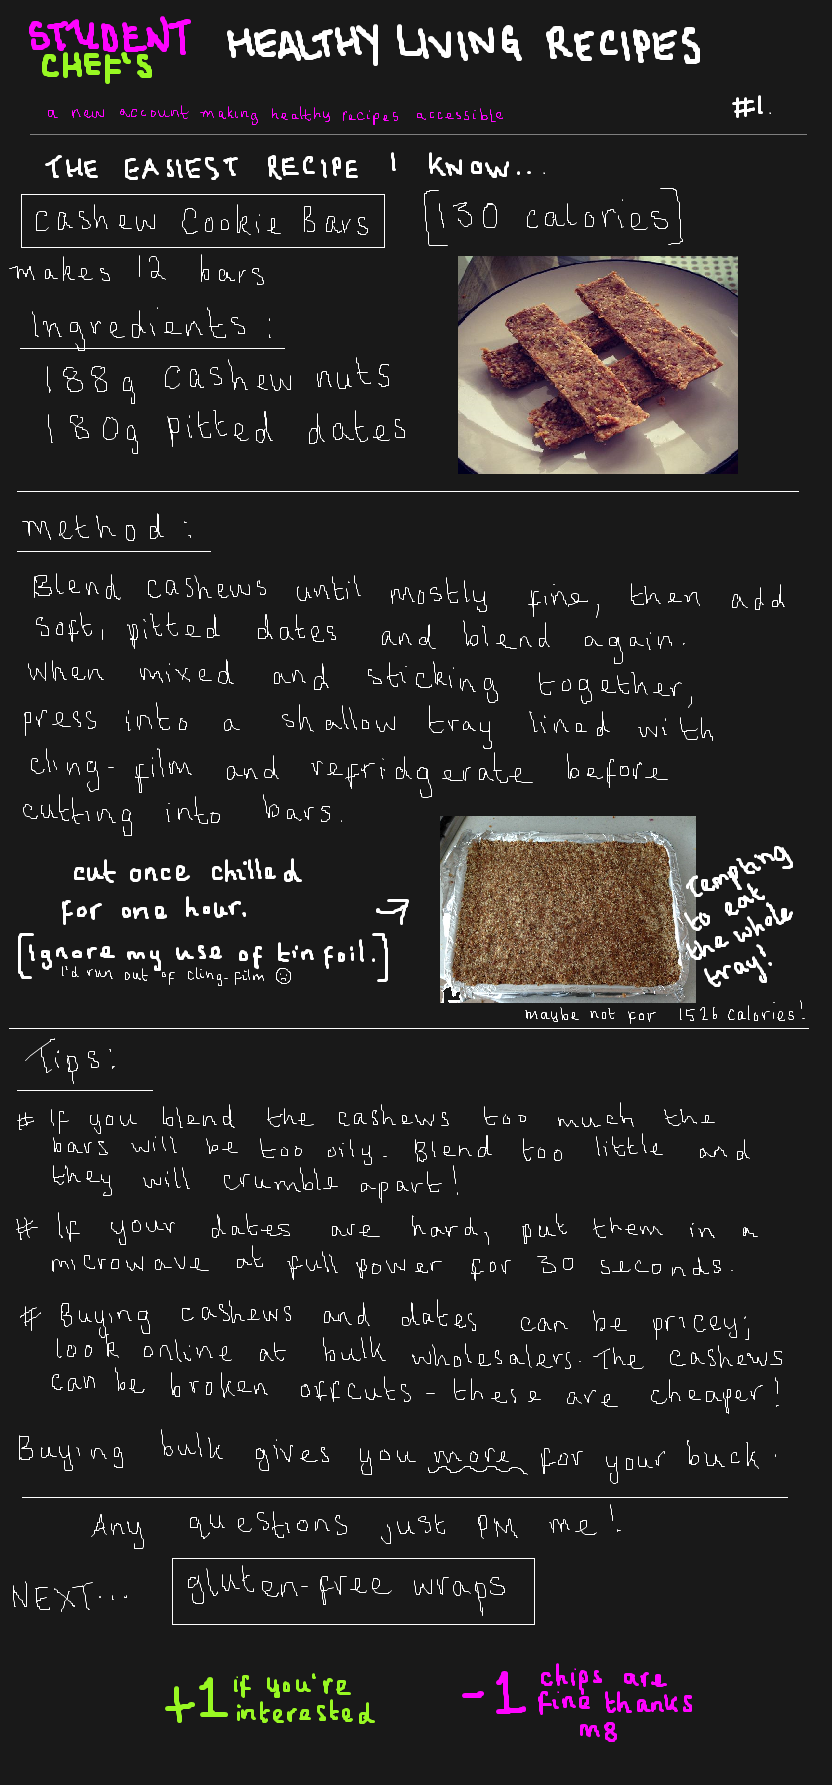 STUDENT CHEF'S
HEALTHY LIVING RECIPES
a new account making healthy recipes accessible
#1.
THE EASIEST RECIPE I KNOW...
Cashew Cookie Bars
[130 calories]
makes 12 bars
Ingredients:
188g cashew nuts
180g pitted dates
method:
Blend cashews until mostly fine, then add
soft, pitted dates and blend again.
When mixed and sticking together,
press into a shallow tray lined with
cling-film and refridgerate before
cutting into bars.
cut once chilled
for one hour.
[Ignore my use of tin foil.]
I'd run out of cling-film ☹
Tempting
to eat
the whole
tray!
maybe not for 1526 calories!
Tips:
# If you blend the cashews too much the
bars will be too oily. Blend too little and
they will crumble apart!
# If your dates are hard, put them in a
microwave at full power for 30 seconds.
# Buying cashews and dates can be pricey;
look online at bulk wholesalers. The cashews
can be broken offcuts - these are cheaper!
Buying bulk gives you more for your buck.
Any questions just PM me!
NEXT...
gluten-free wraps
+1 if you're
interested
-1 chips are
fine thanks
m8